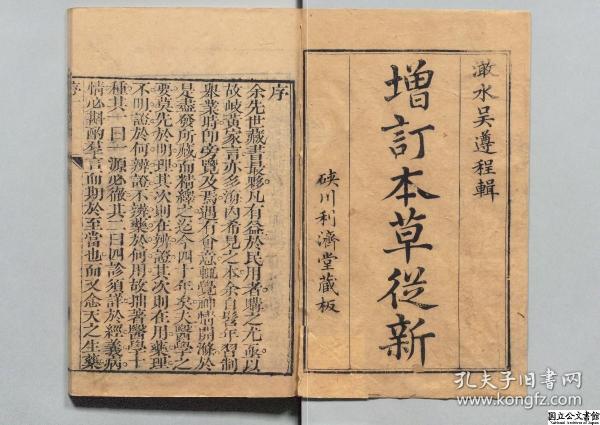 澉水吳遵程輯
增訂本草從新
硤川利濟堂藏板
序
余先世藏書最夥凡有益於民用者購之尤亟以
故岐黃家言亦多海內希見之本余自髫年習制
舉業時即旁覽及焉遇有會意輒覺神情開滌於
是盡發所藏而精繹之迄今四十年矣夫醫學之
要莫先於明理其次則在辨證其次則在用藥理
不明證於何辨證不辨藥於何用故拙著醫學十
種其一曰一源必徹其二曰四診須詳於經義病
情必斟酌羣言而期於至當也而又念天之生藥
序
孔夫子旧书网
www.kongfz.com
国立公文書館
National Archives of Japan